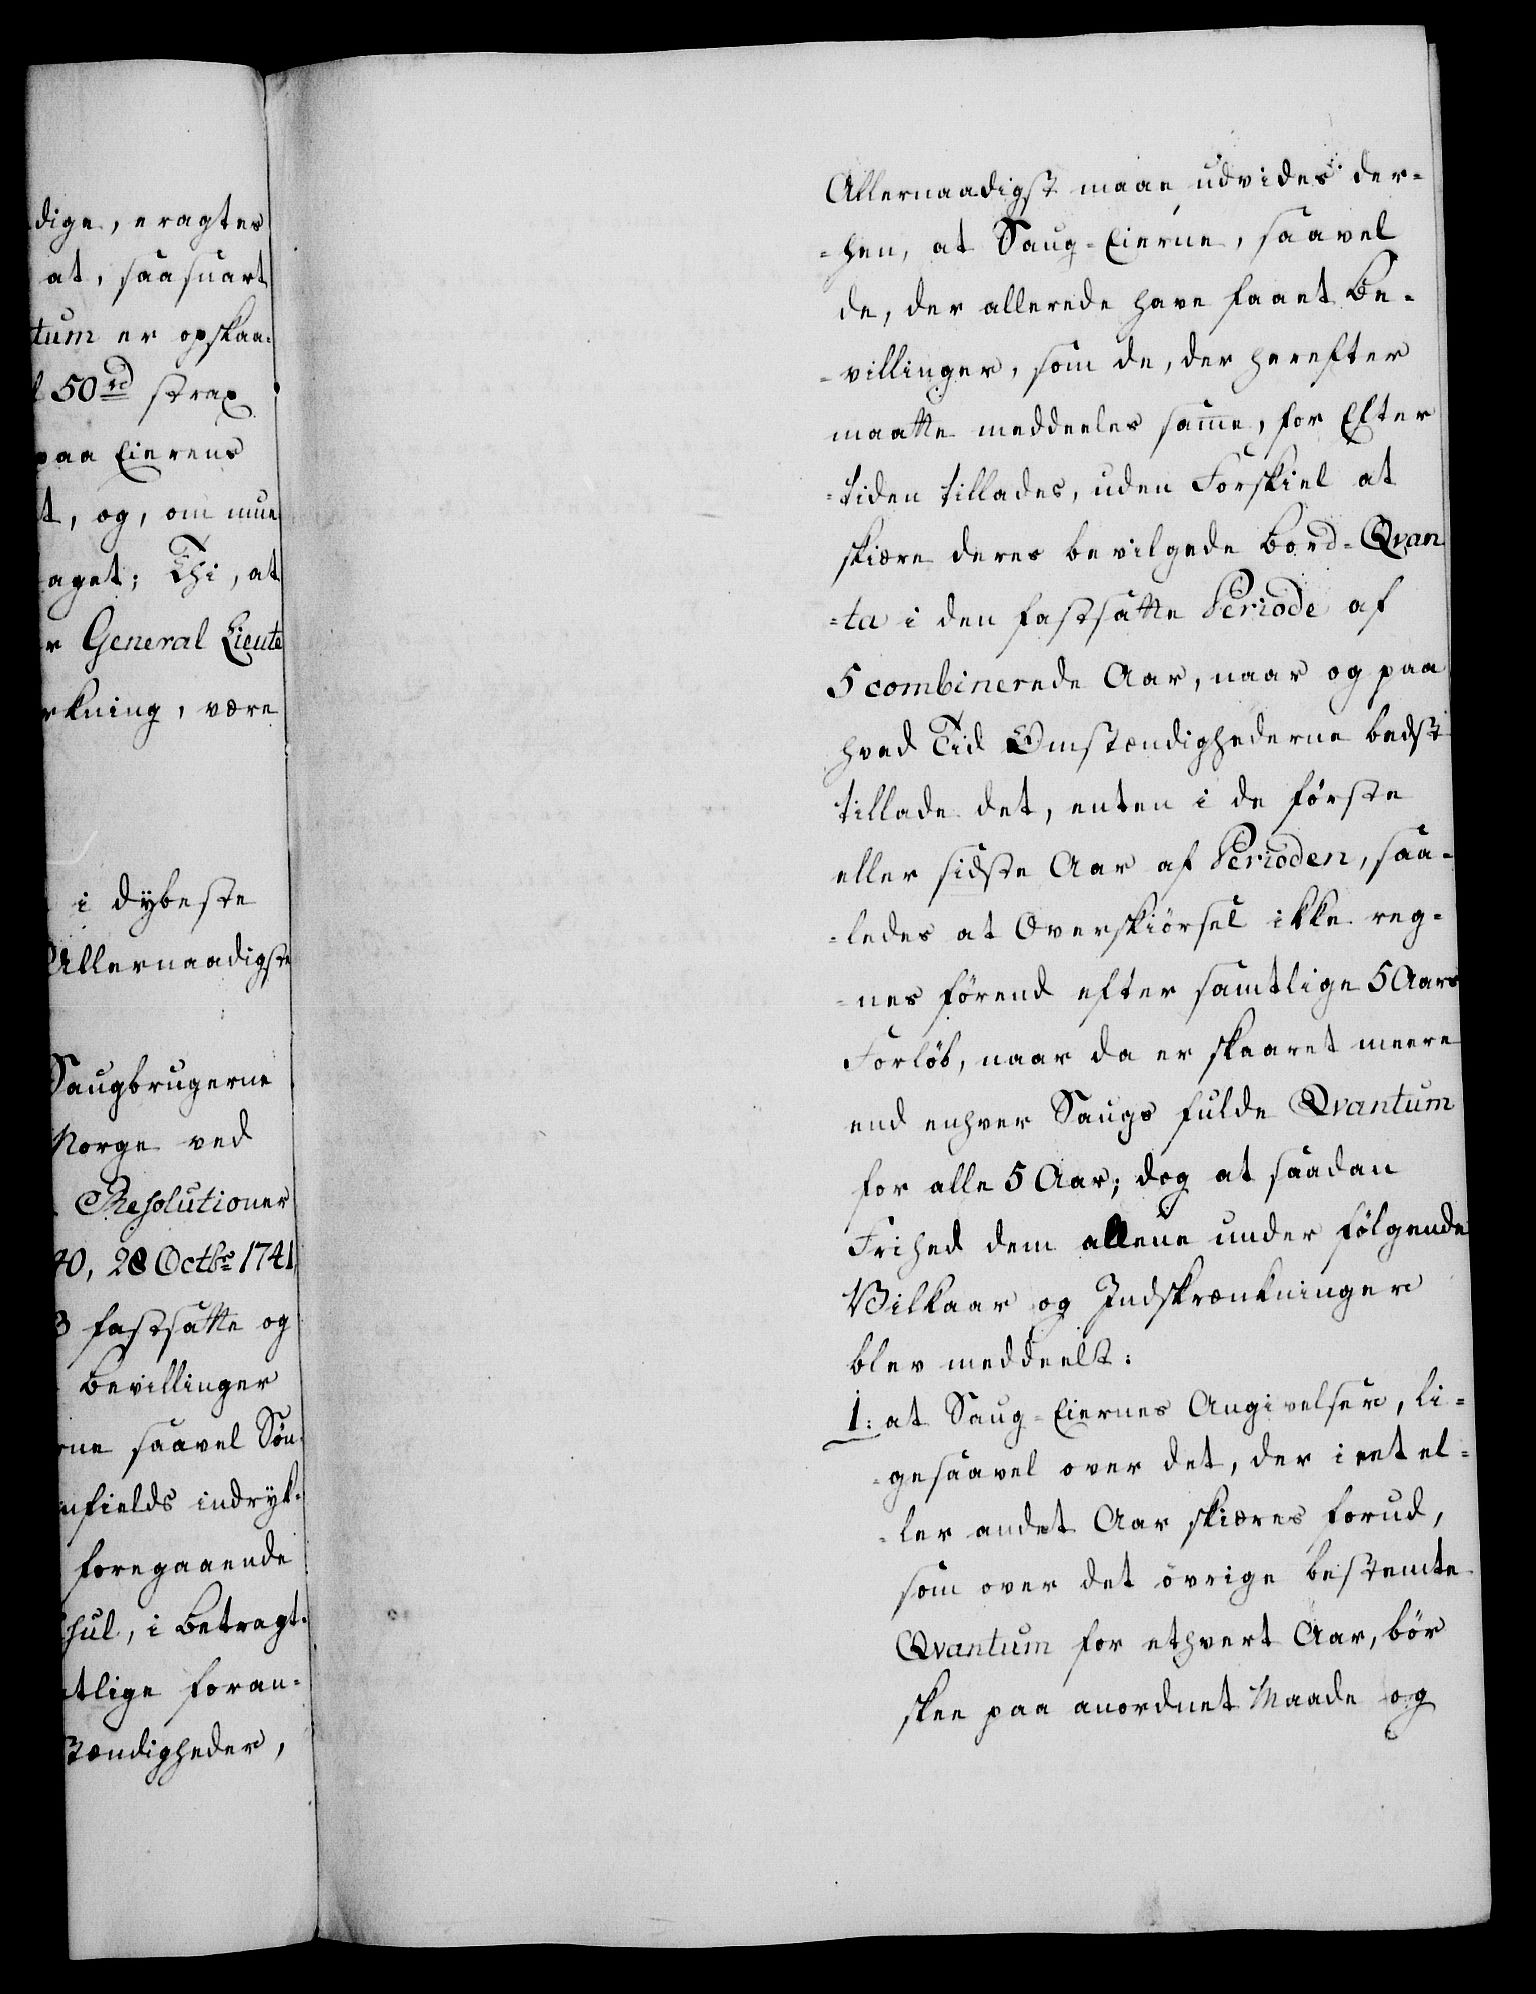 dige, eragtes
at, saasnart
tum er opskaa-
50rd strax
paa Eierens
t, og, om mue
aget; Thi, at
r General Lieute
rkning, være
i dybeste
Allernaadigste
Saugbrugerne
Norge ved
Resolutioner
40, 28 Octbr 1741
3 fastsatte og
Bevillinger
rne saavel Søn-
nfields indryk-
foregaaende
hul, i Betragt-
tlige foran-
stændigheder,
Allernaadigst maae udvides der-
-hen, at Saug-Eierne, saavel
de, der allerede have faaet Be-
-villinger, som de, der herefter
maatte meddeeles samme, for Efter
-tiden tillades, uden Forskiel at
skiære deres bevilgede Bord-Qvan
-ta i den fastsatte Periode af
5 combinerede Aar, naar og paa
hvad Tid Omstændighederne bedst
tillade det, enten i de første
eller sidste Aar af Perioden, saa-
-ledes at Overskiørsel ikke reg-
-nes førend efter samtlige 5 Aars
Forløb, naar da er skaaret meere
end enhver Saugs fulde Qvantum
for alle 5 Aar; dog at saadan
Frihed dem allene under følgende
Vilkaar og Indskrænkninger
blev meddeelt:
1: at Saug-Eiernes Angivelser, li-
-gesaavel over det, der i eet el-
-ler andet Aar skiæres forud,
som over det øvrige bestemte
Qvantum for ethvert Aar, bør
skee paa anordnet Maade og